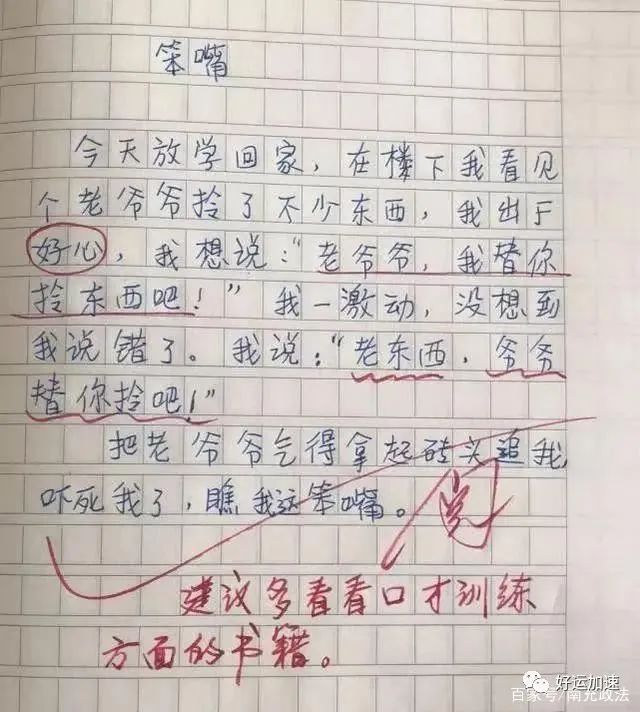 笨嘴
今天放学回家，在楼下我看见
个老爷爷拎了不少东西，我出于
好心，我想说：“老爷爷，我替你
拎东西吧！”我一激动，没想到
我说错了。我说：“老东西，爷爷
替你拎吧！”
把老爷爷气得拿起砖头追我
吓死我了，瞧我这笨嘴。
阅
建议多看看口才训练
方面的书籍。
好运加速
百家号/南充政法